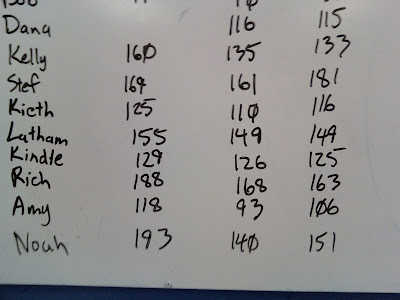 Dana 116 115
Kelly 160 135 133
Stef 169 161 181
Kieth 125 110 116
Latham 155 149 149
Kindle 129 126 125
Rich 188 168 163
Amy 118 93 106
Noah 193 140 151